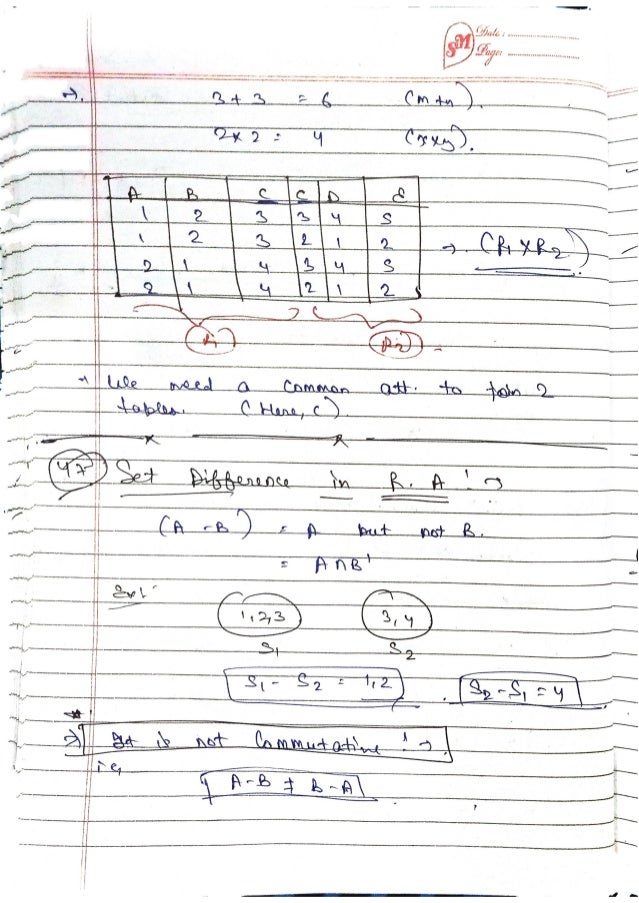 SM Date:
Page:
→. 3 + 3 = 6 (m+n).
2 x 2 = 4 (x x y).
A B C C D E
1 2 3 3 4 5
1 2 3 2 1 2 → (R1 X R2)
2 1 4 3 4 5
2 1 4 2 1 2
R1 R2
→ We need a common att. to join 2
tables. (Here, C)
x x
47 Set Difference in R. A :→
(A - B) = A but not B.
= A ∩ B'
Ex:
1,2,3 3, 4
S1 S2
S1 - S2 = 1,2 . S2 - S1 = 4
→ It is not Commutative :→
ie,
A-B ≠ B-A